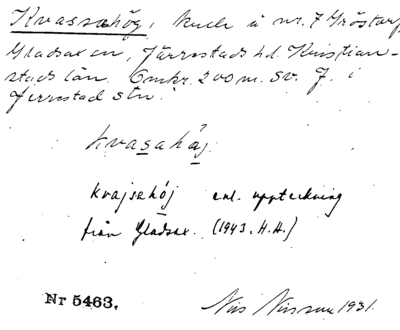 Kvassahög, kulle å nr. 7 Gröstorp,
Gladsax sn, Järrestads hd. Kristian-
stads län. Omkr. 200 m. SV. f. i
Jerrestad stn.
Kvasahåj
Kvajsahöj enl. uppteckning
från Gladsax. (1943. H.H.)
Nr 5463.
Nils Nilsson 1931.